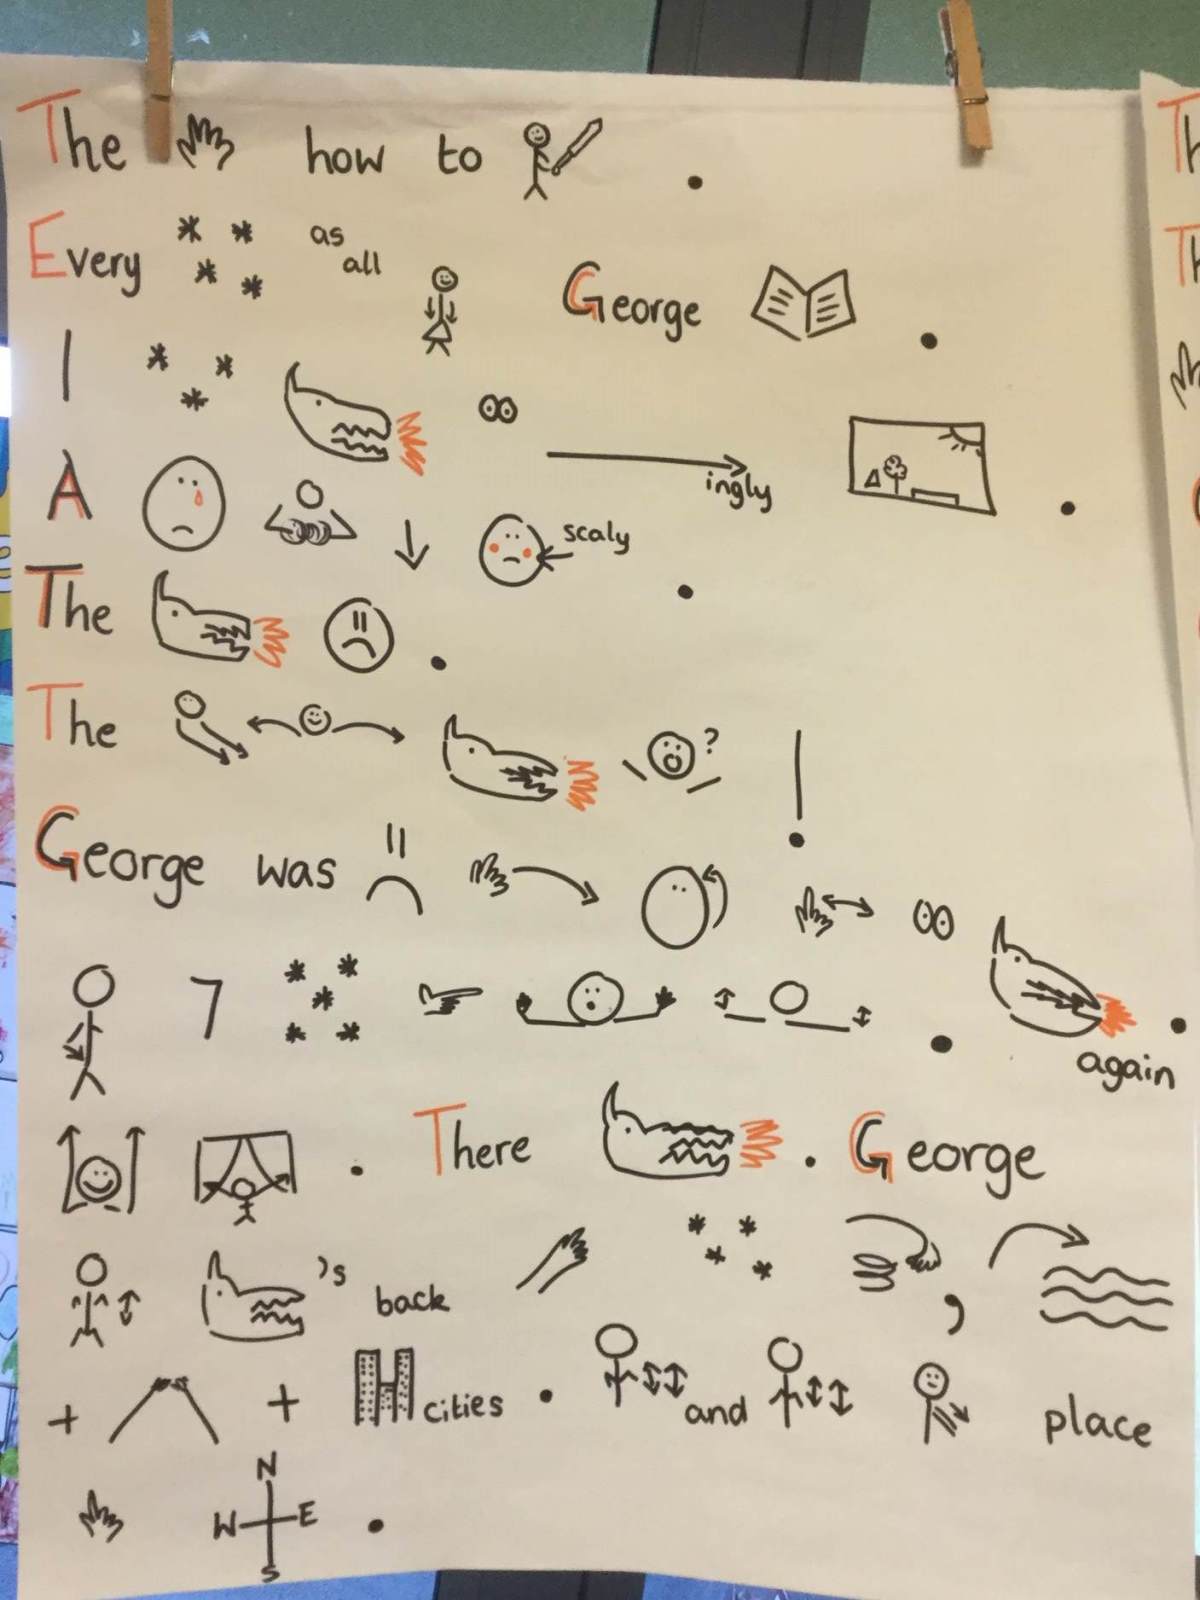 The how to .
Every as all George .
I
ingly .
A scaly .
The .
The ? !
George was
7 .
again .
. There . George
's back ,
+ + cities . and place
N
W E .
S
Th
Th